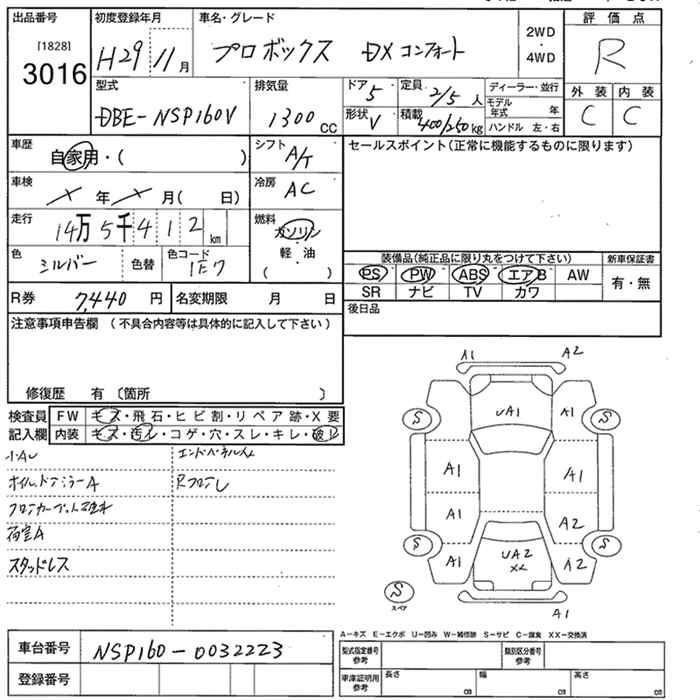 出品番号 初度登録年月 車名・グレード 2WD・4WD 評価点
[1828]
3016 H29 11月 プロボックス DXコンフォート R
型式 排気量 ドア 5 定員 2/5人 ディーラー・並行 外装 内装
DBE-NSP160V 1300cc 形状 V 積載 400/250kg モデル年式 年 C C
ハンドル 左・右
車歴 自家用・( ) シフト A/T セールスポイント(正常に機能するものに限ります)
車検 × 年 × 月( 日) 冷房 AC
走行 14万5千412km 燃料 ガソリン・軽・油 ( )
色 シルバー 色替 色コード 1E7
装備品(純正品に限り丸をつけて下さい) 新車保証書
PS PW ABS エアB AW 有・無
SR ナビ TV カワ
R券 7,440円 名変期限 月 日 後日品
注意事項申告欄 (不具合内容等は具体的に記入して下さい)
修復歴 有 〔箇所 〕
検査員記入欄 FW キズ・飛石・ヒビ割・リペア跡・X要
内装 キズ・汚レ・コゲ・穴・スレ・キレ・破レ
小AU
R フロアL
荷室A
スタッドレス
A1 A2
S UA1 A1 S
A1 A1
A1 A2
S A1 UA2 A2 S
S
スペア
A1
A-キズ E-エクボ U-凹み W-補修跡 S-サビ C-腐食 XX-交換済
車台番号 NSP160-0032223 型式指定番号 参考 類別区分番号 参考
登録番号 車庫証明用 参考 長さ cm 幅 cm 高さ cm